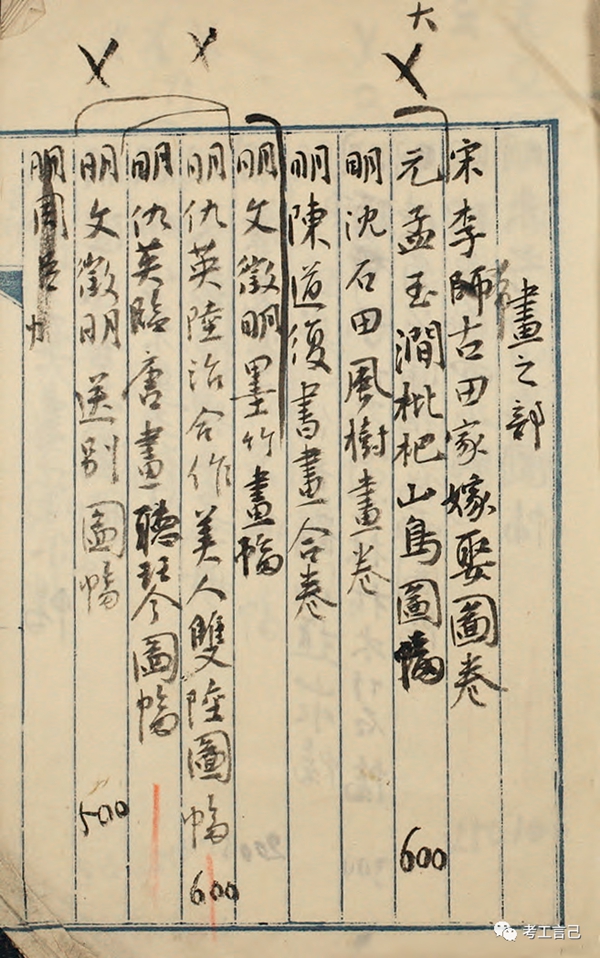 大
畫之部
宋李師古田家嫁娶圖卷
元孟玉澗枇杷山鳥圖幅 600
明沈石田風樹畫卷
明陳道復書畫合卷
明文徵明墨竹畫幅
明仇英陸治合作美人雙陸圖幅 600
明仇英臨唐畫聽琴圖幅
明文徵明送別圖幅 500
明周
考工言己